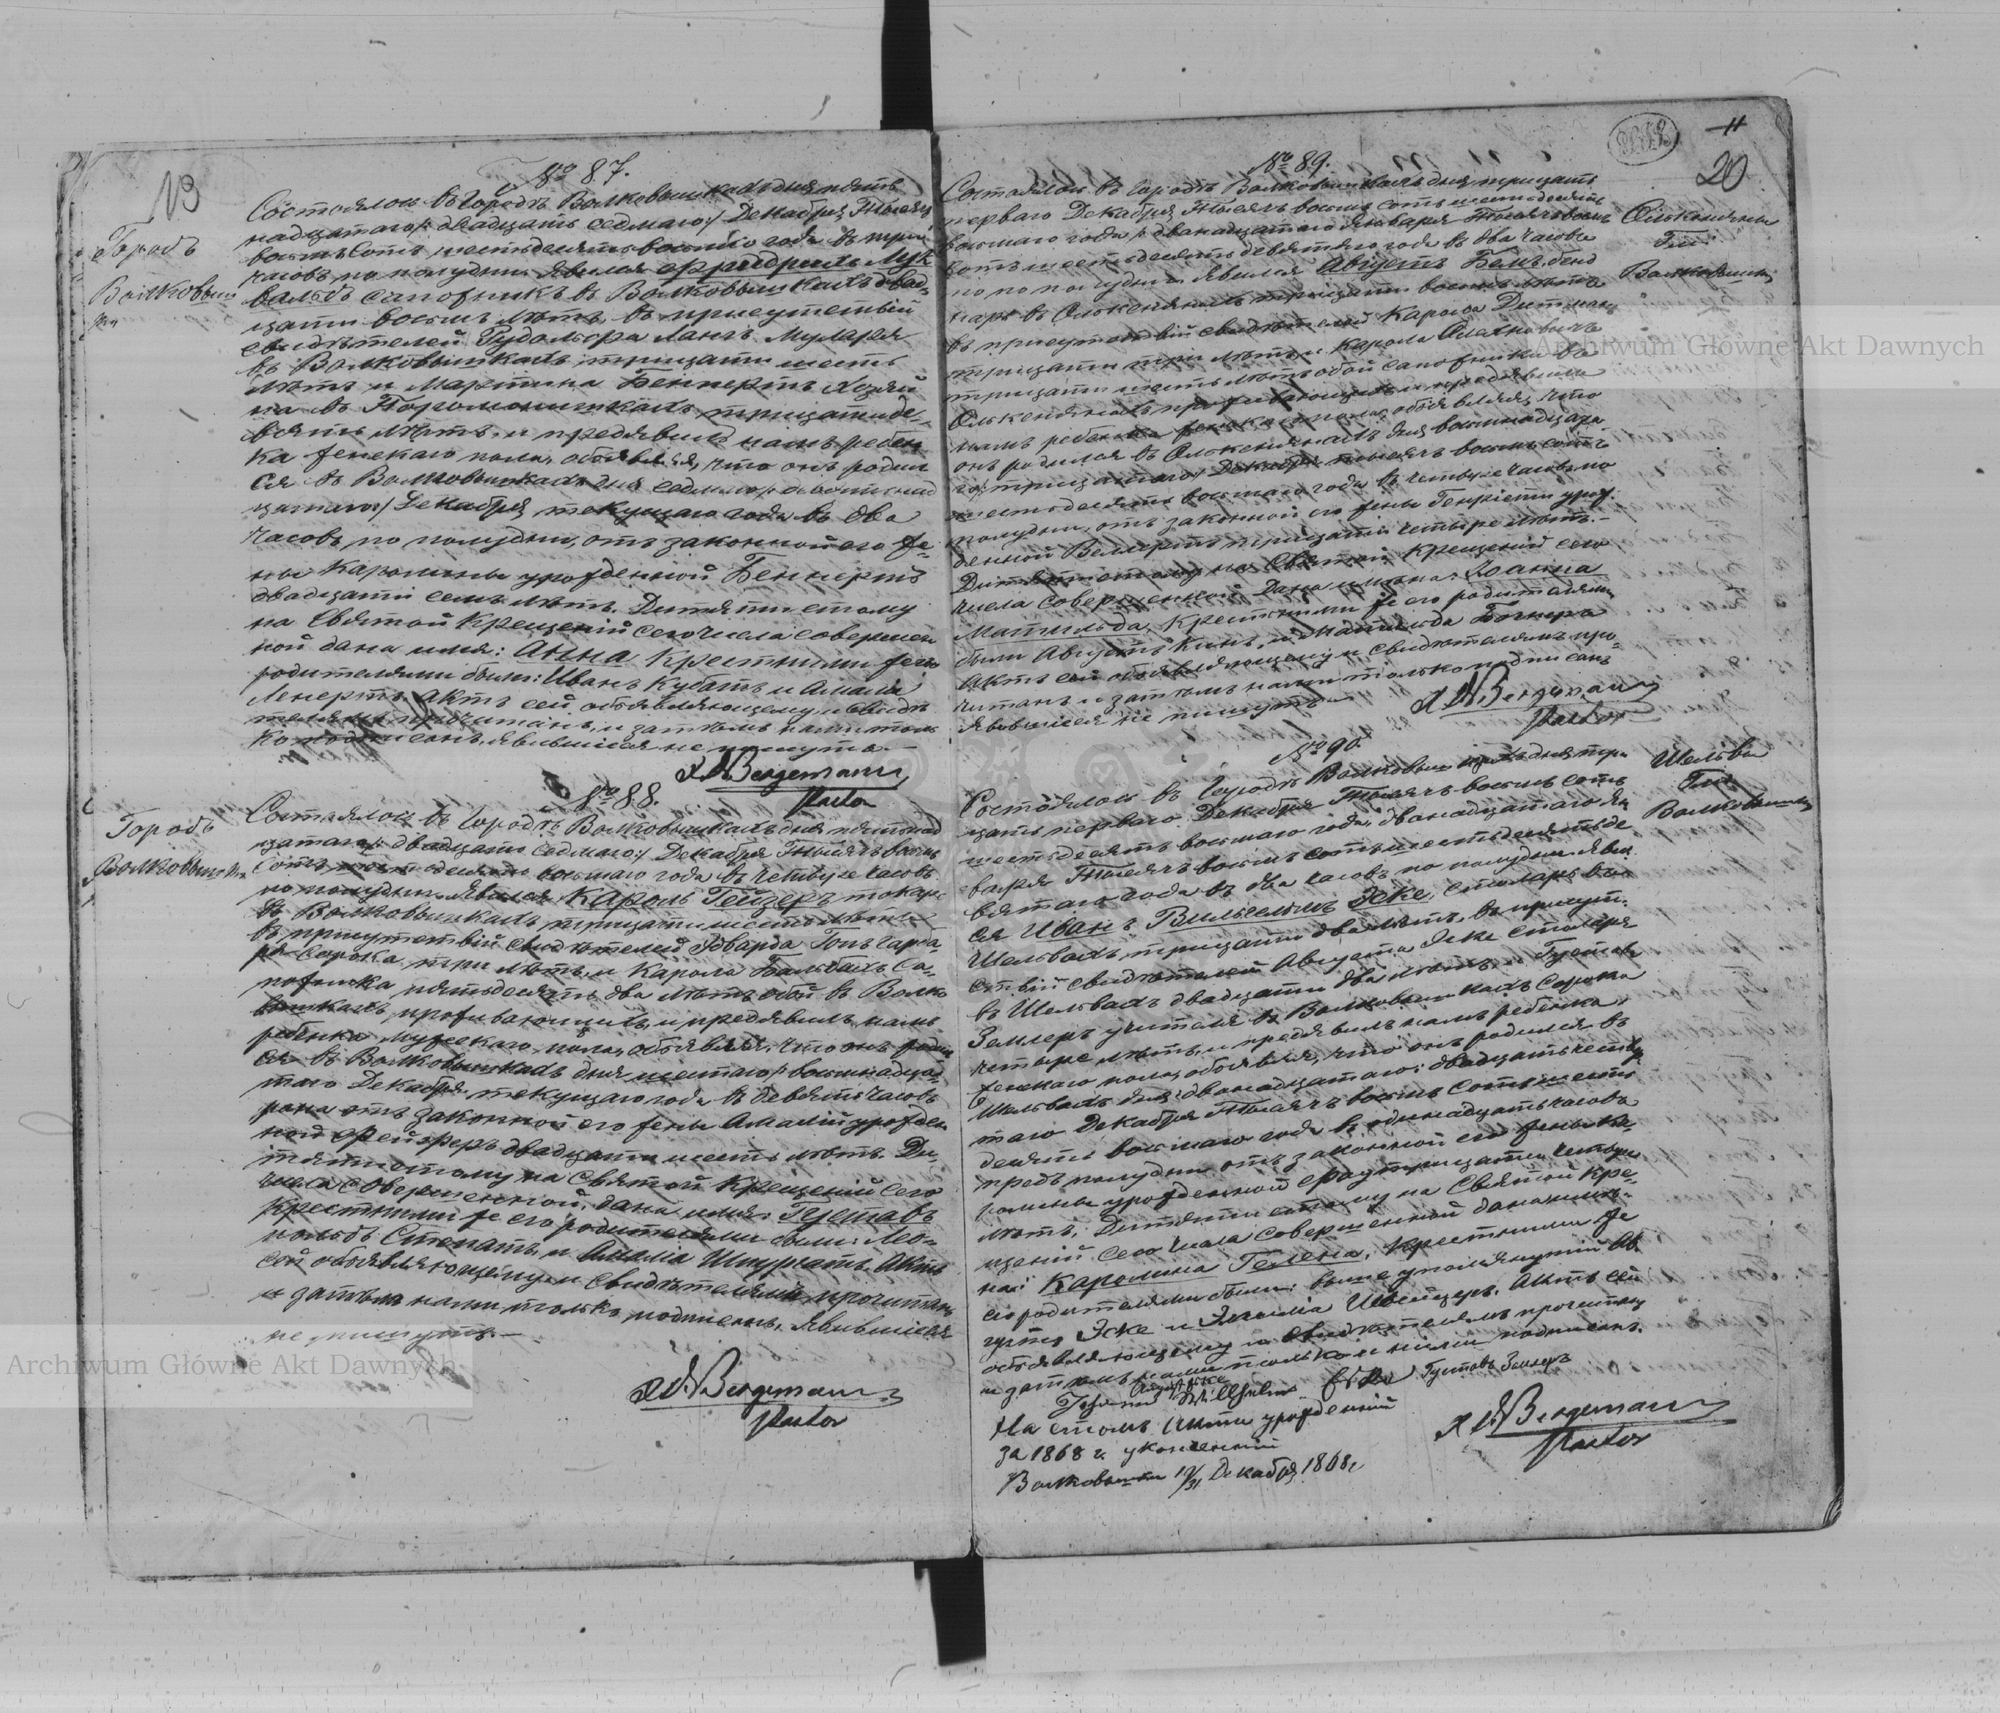 19
№ 87.
Городъ
Волковышки
Состоялось въ Городѣ Волковышкахъ дня пят-
надцатаго /: двадцать седмаго :/ Декабря Тысяч
восемьсотъ шестьдесятъ восьмаго года въ три
часовъ по полудни. Явился Фридрихъ
сапожникъ въ Волковышкахъ двад-
цати восемь лѣтъ, въ присутствіи
свидѣтелей Рудольфа Лангъ Муляря
въ Волковышкахъ тридцати шесть
лѣтъ и Мартина Беннертъ Хозяи-
на въ тридцати де-
вять лѣтъ, и предявилъ намъ ребен-
ка женскаго пола, объявляя, что онъ родил
ся въ Волковышкахъ дня седмаго /: девятнад
цатаго :/ Декабря текущаго года въ два
часовъ по полудни, отъ законной его же-
ны Каролины урожденной Беннертъ
двадцати семь лѣтъ. Дитяти этому
на Святой Крещеній сего числа совершен
ной дана имя: Анна Крестными же его
родителями были: Иванъ Кубатъ и Амалія
Ленертъ. Актъ сей, объявляющему и свидѣ
телямъ прочитанъ, и затѣмъ нами толь
ко подписанъ, явившіеся не пишутъ.—
Bergemann
Pastor
№ 88.
Городъ
Волковышки
Состоялось въ Городѣ Волковышкахъ дня пятнад
цатаго /: двадцать седмаго :/ Декабря Тысячъ восемь
сотъ шестьдесятъ восьмаго года въ четыре часовъ
по полудни. Явился Кароль Гейзеръ токарь
въ Волковышкахъ тридцати шесть лѣтъ
въ присутствіи свидѣтелей Эдварда
сорока три лѣтъ, и Карола Бальбахъ Са-
пожника пятьдесятъ два лѣтъ обои въ Волко
вышкахъ проживающихъ, и предявилъ намъ
ребенка мужескаго пола, объявляя, что онъ родил
ся въ Волковышкахъ дня шестаго /: восьмнадца-
таго Декабря текущаго года въ девять часовъ
рана отъ законной его жены Амалій урожден
ной двадцати шесть лѣтъ. Ди-
тяти этому на Святой Крещеній сего
числа совершенной, дана имя: Густавъ
Крестными же его родителями были: Лео-
польдъ Степатъ, и Амалія Актъ
сей объявляющему и свидѣтелямъ прочитанъ
и затѣмъ нами только подписанъ, явившіеся
не пишутъ.—
Bergemann
Pastor
11
20
№ 89.
Гм:
Волковышки
Состоялось въ Городѣ Волковышкахъ дня тридцать
перваго Декабря Тысячъ восемь сотъ шестьдесятъ
восьмаго года /: двѣнадцатаго Января Тысячъ восемь
сотъ шестьдесятъ девятаго года въ два часовъ
по полудни. Явился Августъ
въ тридцати восемь лѣтъ
въ присутствіи свидѣтелей Карола
тридцати три лѣтъ и Карола
тридцати шесть лѣтъ обои сапожники въ
проживающихъ и предявилъ
намъ ребенка женскаго пола, объявляя, что
онъ родился въ дня восьмнадцата-
го /: тридцатаго :/ Декабря тысячъ восемь сотъ
шестьдесятъ восьмаго года въ четыре часовъ по
полудни, отъ законной его жены Генріети урож-
денной тридцати четыре лѣтъ.—
Дитяти этому на Святой Крещеній сего
числа совершенной Дана имя: Іоанна
Матильда, Крестными же его родителями
были Августъ и Матильда
Актъ сей объявляющему и свидѣтелямъ про-
читанъ и затѣмъ нами только подписанъ
явившіеся не пишутъ.—
Bergemann
Pastor
№ 90.
Шельвы
Гм:
Волковышки
Состоялось въ Городѣ Волковышкахъ дня три-
цать перваго Декабря Тысячъ восемь сотъ
шестьдесятъ восьмаго года /: двѣнадцатаго Ян
варя Тысячъ восемь сотъ шестьдесятъ де
вятаго года въ два часовъ по полудни. Яви
ся Иванъ Вильгельмъ Эске, столяръ въ
Шельвахъ тридцати два лѣтъ, въ присут-
ствій свидѣтелей Августа Эске столяря
въ Шельвахъ двадцати два лѣтъ, и Густава
Землеръ учителя въ Волковышкахъ Сорока
четыре лѣтъ, и предявилъ намъ ребенка
женскаго пола, объявляя, что онъ родился въ
Шельвахъ дня двѣнадцатаго: двадцать четвер
таго Декабря Тысячъ восемь сотъ шесть
десятъ восьмаго года въ одиннадцать часовъ
предъ полудни отъ законной его жены Ка-
ролины урожденной тридцати четыре
лѣтъ. Дитяти этому на Святой Кре-
щеній сего числа совершенной дана имя-
на: Каролина Гелена. Крестными же
его родителями были: вышеупомянутый Ав-
густъ Эске и Швейцеръ. Актъ сей
объявляющему и свидѣтелямъ прочитанъ
и затѣмъ нами только и ними подписанъ.
August Eske
Wilhelm Eske Густавъ Землеръ
На этомъ акты урожденній
за 1868 г. укончений
Волковышки 19/31 Декабря 1868 г.
Bergemann
Pastor
Archiwum Główne Akt Dawnych
Archiwum Główne Akt Dawnych